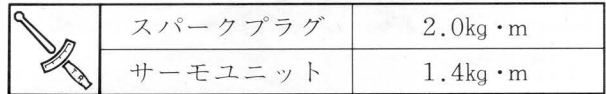 スパークプラグ 2.0kg・m
サーモユニット 1.4kg・m